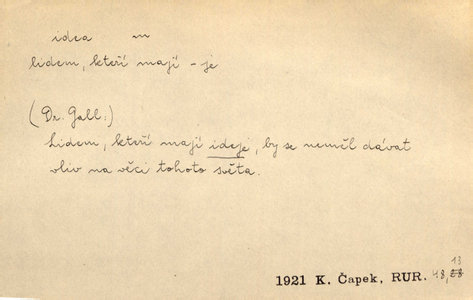 idea m
lidem, kteří mají - je
(Dr. Gall:)
Lidem, kteří mají ideje, by se neměl dávat
vliv na věci tohoto světa.
13
1921 K. Čapek, RUR. 48,